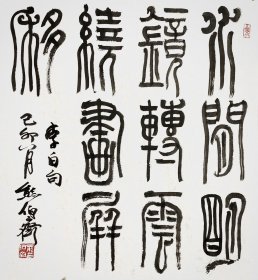 水閒明
鏡轉雲
繞畫屏
移
李白句
己卯八月熊伯齊